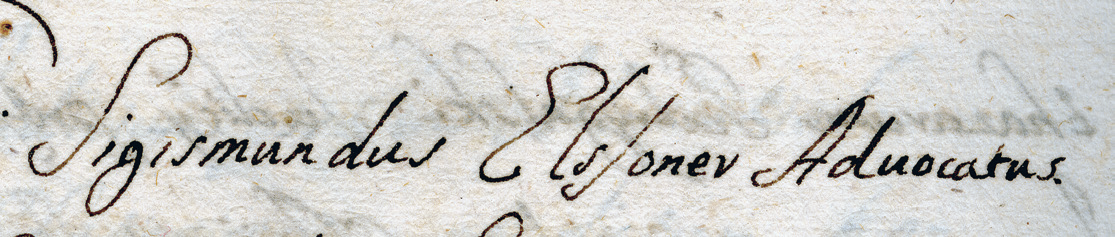 Sigismundus Elsſoner Aduocatus.